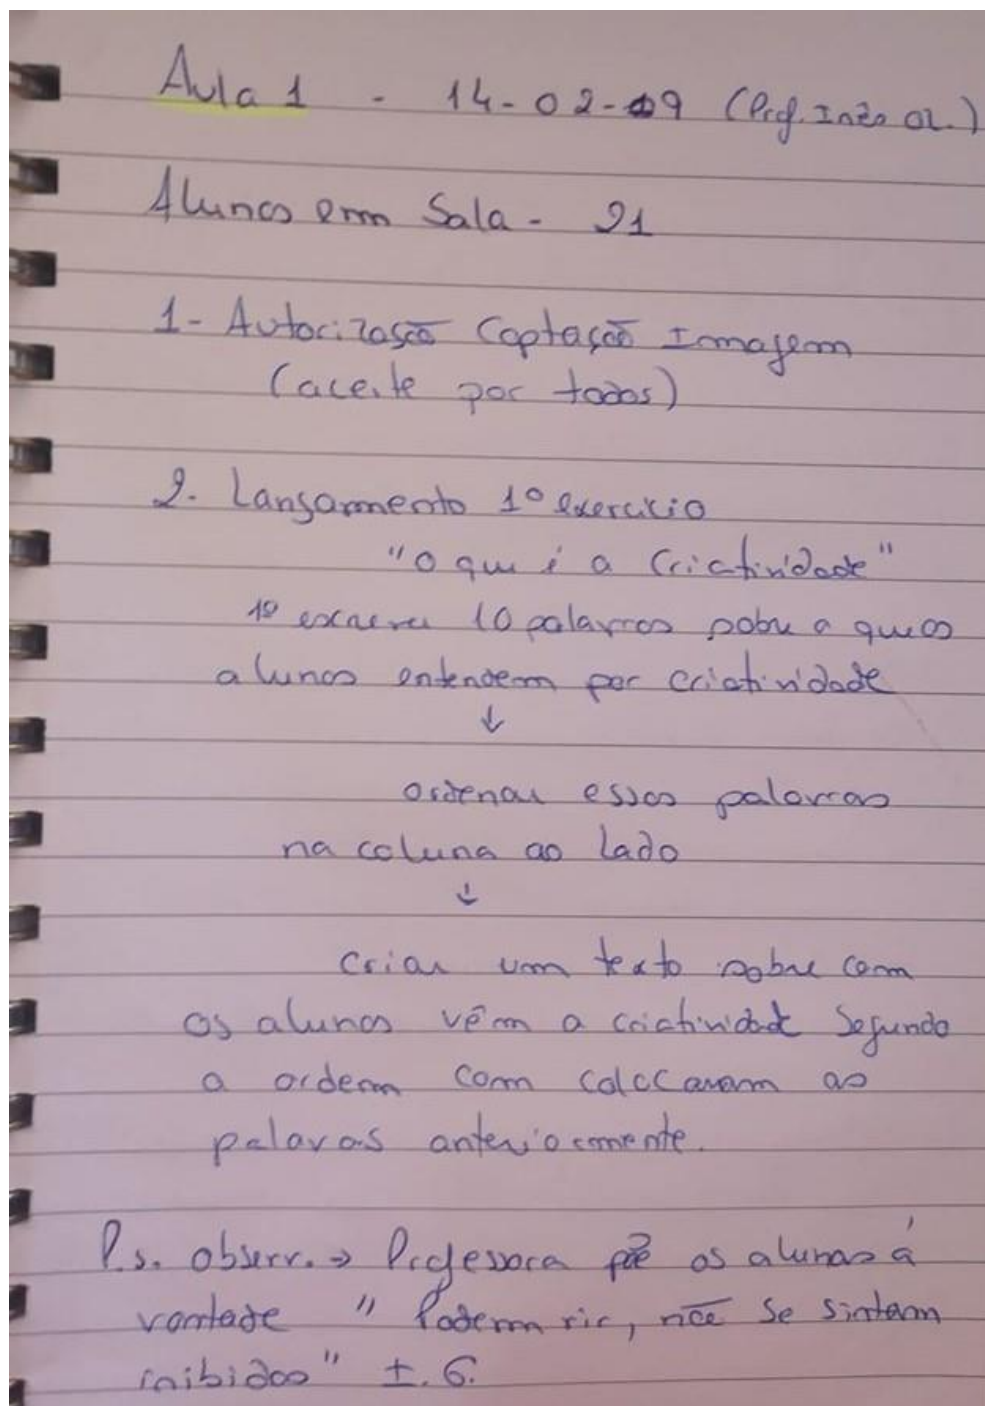 Aula 1 - 14-02-19 (Prof. Inês Ol.)
Alunos em Sala - 21
1- Autorização Captação Imagem
(aceite por todos)
2. Lançamento 1º exercício
"O que é a Criatividade"
1º escrever 10 palavras sobre o que os
alunos entendem por criatividade
↓
ordenar essas palavras
na coluna ao lado
↓
Criar um texto sobre com
os alunos vêm a criatividade Segundo
a ordem com colocaram as
palavas anteriormente.
P.s. observ. → Professora põe os alunos á
vontade "Podem rir, não se sintam
inibidos"